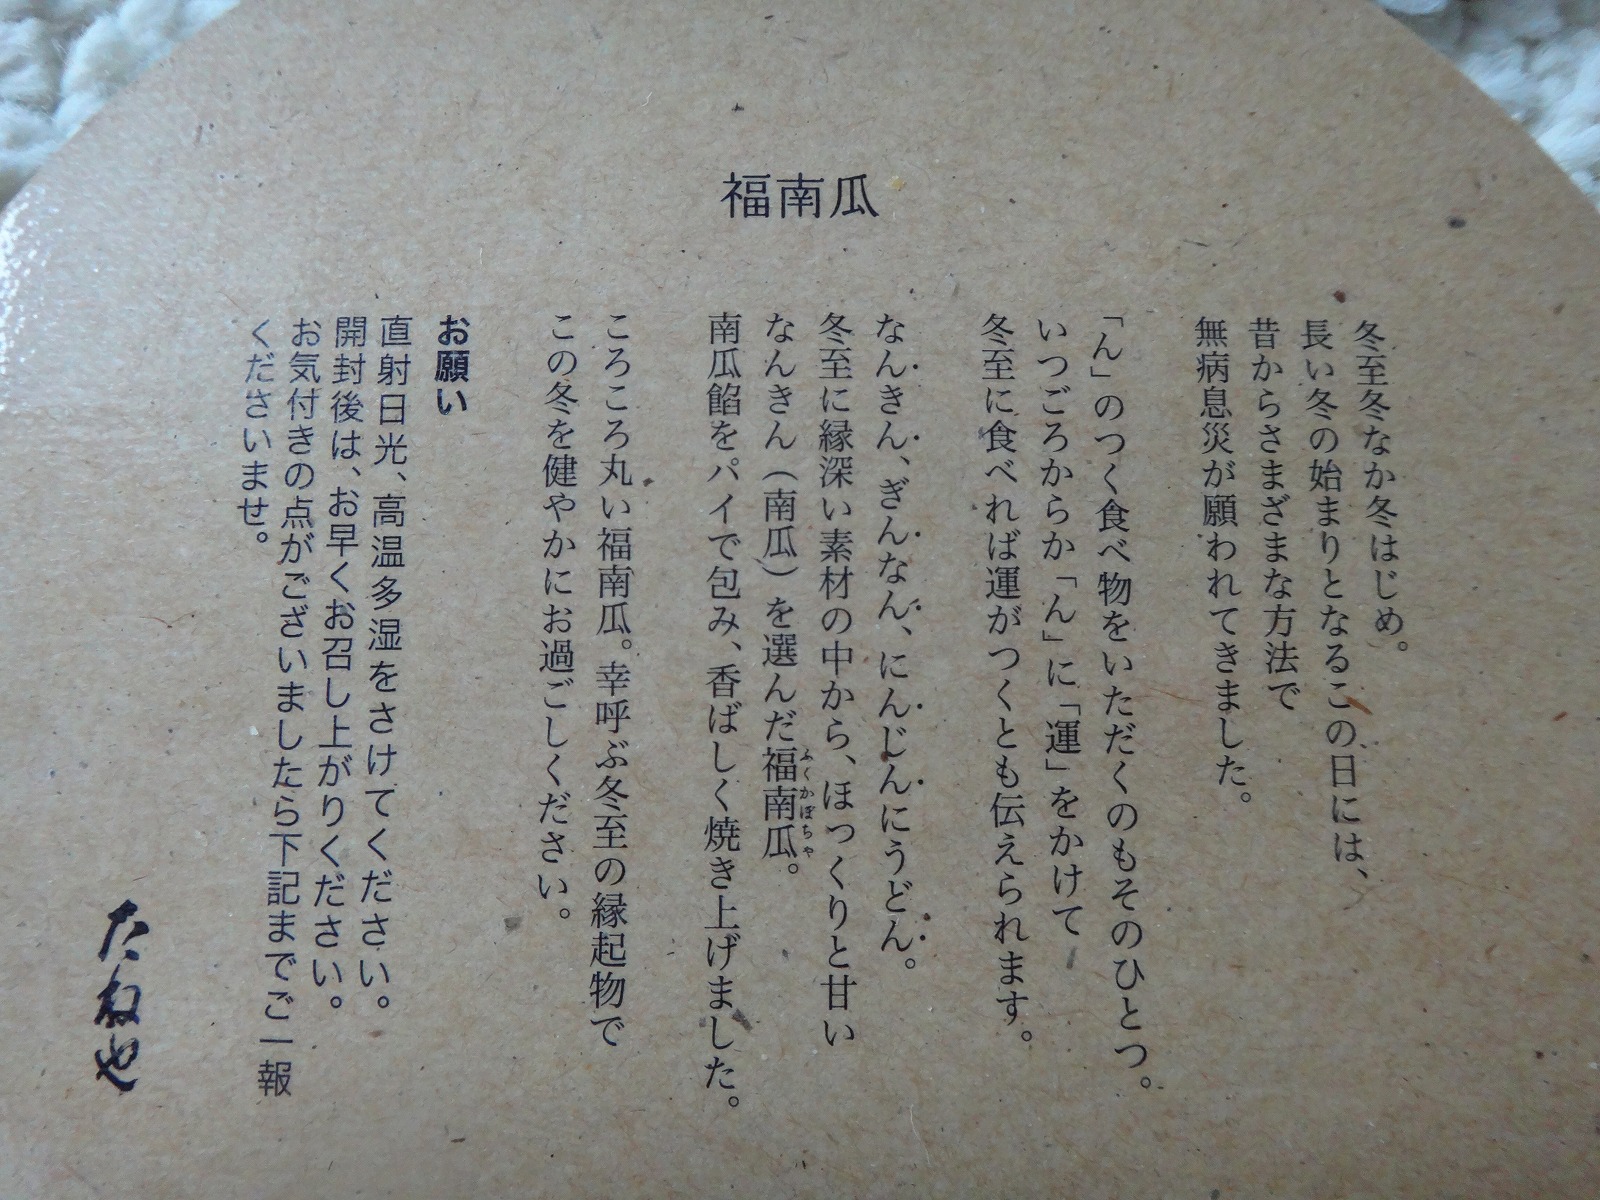 福南瓜
冬至冬なか冬はじめ。
長い冬の始まりとなるこの日には、
昔からさまざまな方法で
無病息災が願われてきました。
「ん」のつく食べ物をいただくのもそのひとつ。
いつごろからか「ん」に「運」をかけて
冬至に食べれば運がつくとも伝えられます。
なんきん、ぎんなん、にんじんにうどん。
冬至に縁深い素材の中から、ほっくりと甘い
なんきん（南瓜）を選んだ福南瓜。
ふくかぼちゃ
南瓜餡をパイで包み、香ばしく焼き上げました。
ころころ丸い福南瓜。幸呼ぶ冬至の縁起物で
この冬を健やかにお過ごしください。
お願い
直射日光、高温多湿をさけてください。
開封後は、お早くお召し上がりください。
お気付きの点がございましたら下記までご一報
くださいませ。
たねや